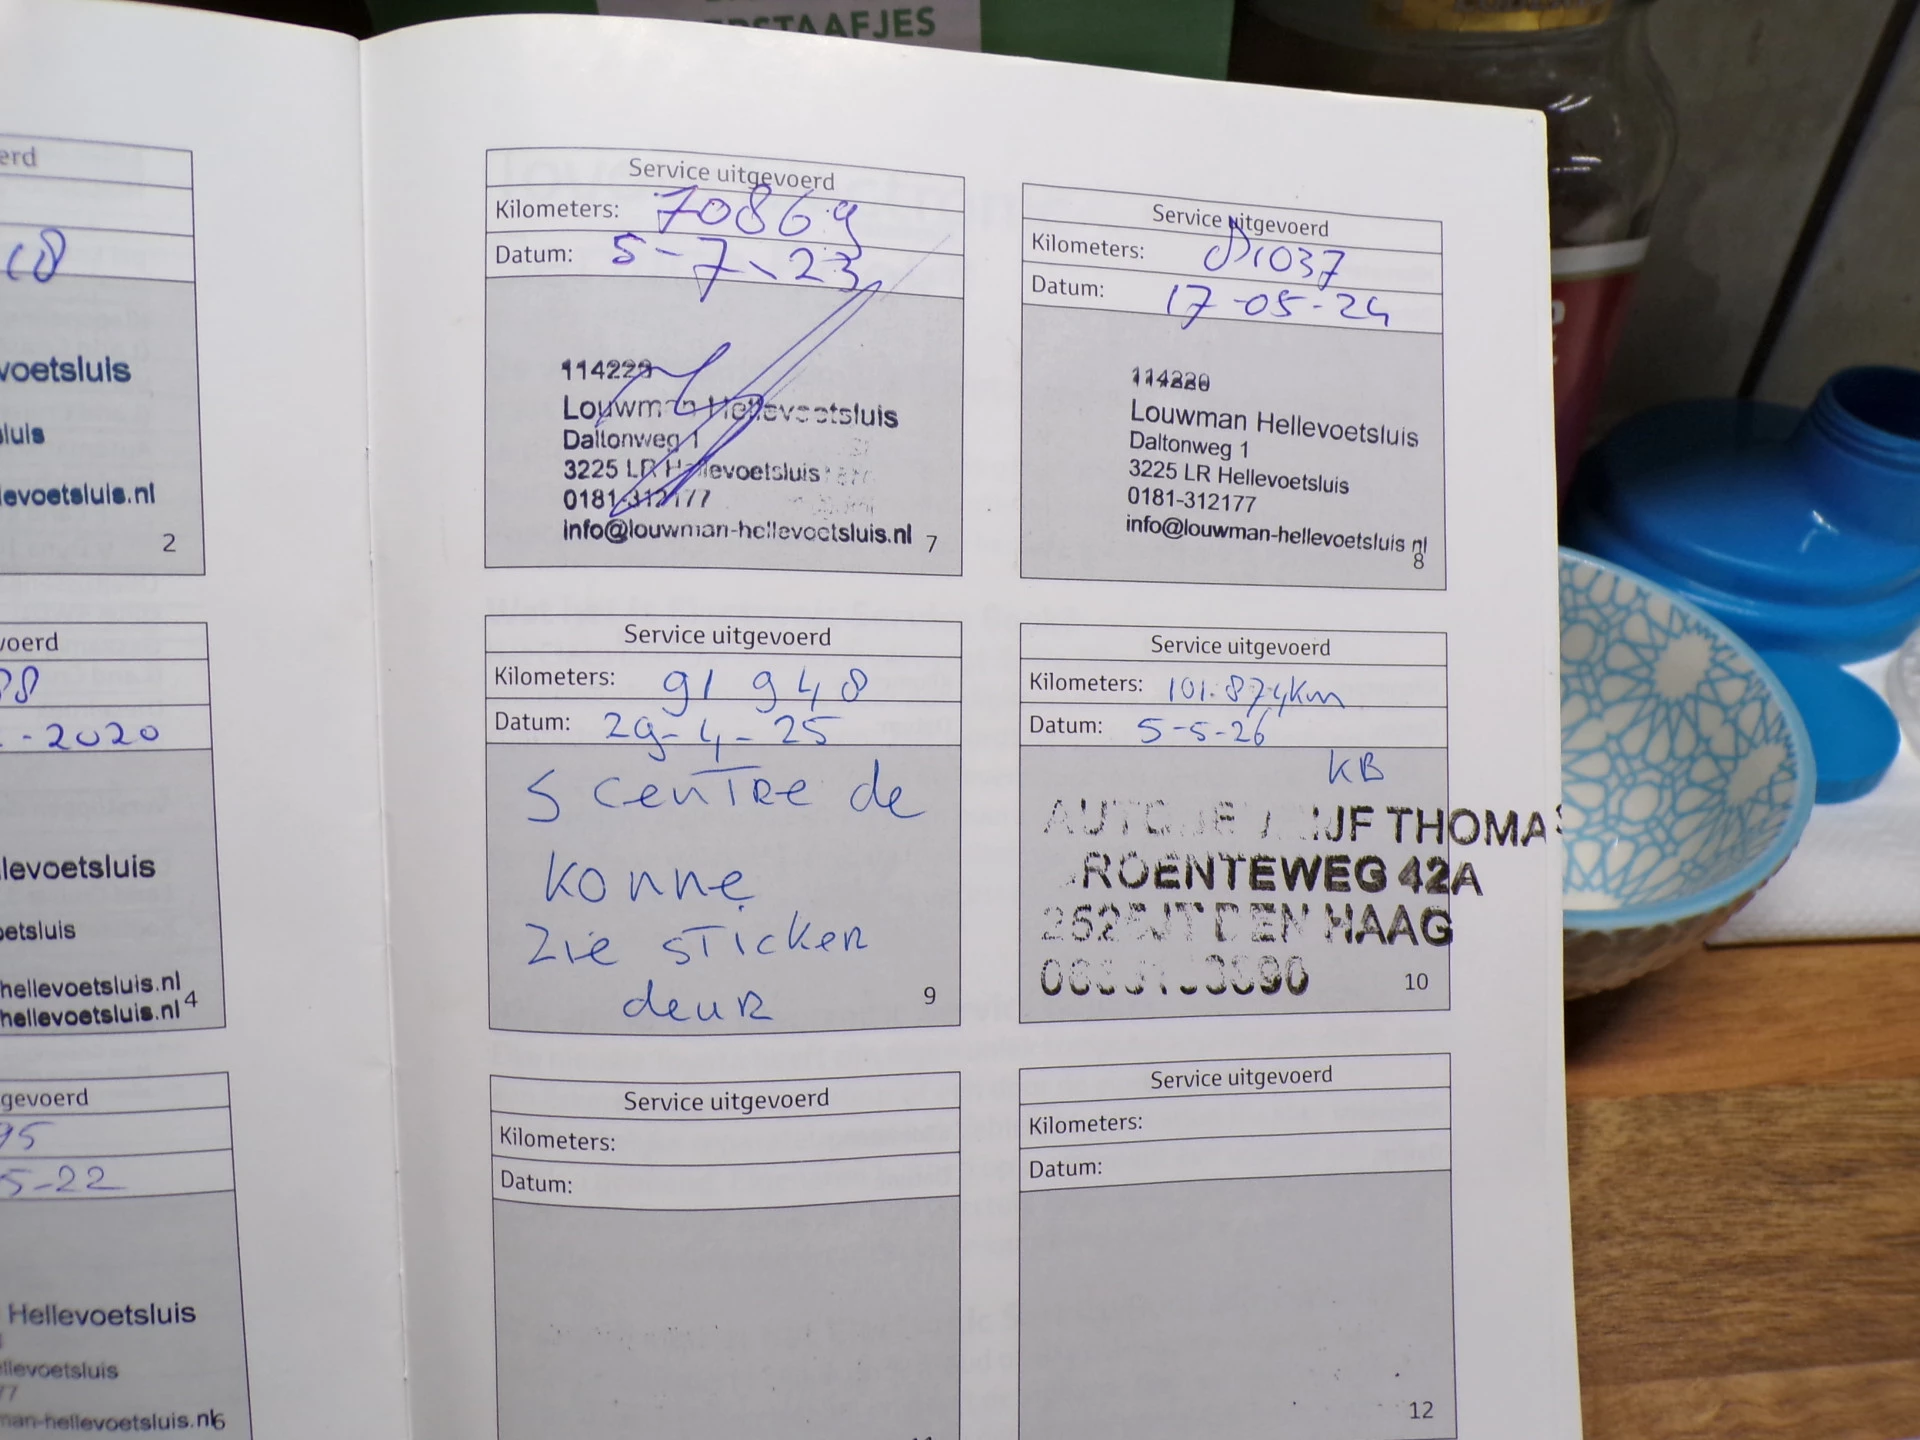 ERSTAAFJES
erd
18
voetsluis
sluis
levoetsluis.nl
2
voerd
98
-2020
llevoetsluis
oetsluis
hellevoetsluis.nl
hellevoetsluis.nl 4
gevoerd
95
5-22
Hellevoetsluis
llevoetsluis
77
man-hellevoetsluis.nl6
Service uitgevoerd
Kilometers: 70869
Datum: 5-7-23
114229
Louwman Hellevoetsluis
Daltonweg 1
3225 LR Hellevoetsluis
0181-312177
info@louwman-hellevoetsluis.nl 7
Service uitgevoerd
Kilometers: 81037
Datum: 17-05-24
114220
Louwman Hellevoetsluis
Daltonweg 1
3225 LR Hellevoetsluis
0181-312177
info@louwman-hellevoetsluis nl
8
Service uitgevoerd
Kilometers: 91 948
Datum: 29-4-25
S CENTRE de
KONNE
Zie STicker
deur
9
Service uitgevoerd
Kilometers: 101.874km
Datum: 5-5-26
KB
THOMAS
ROENTEWEG 42A
DEN HAAG
10
Service uitgevoerd
Kilometers:
Datum:
Service uitgevoerd
Kilometers:
Datum:
12